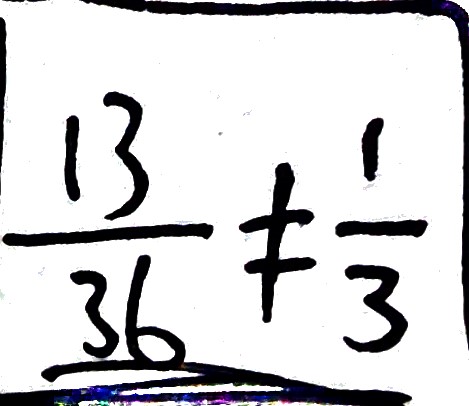 13/36 ≠ 1/3